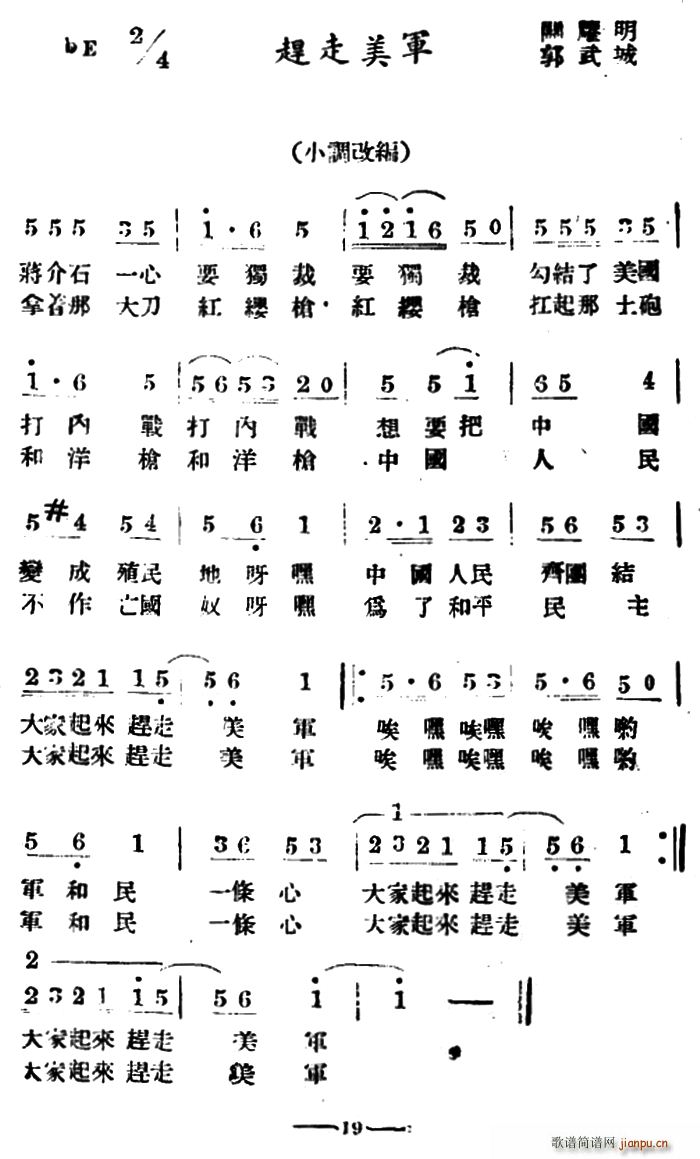 bE 2/4 趕走美軍 關耀明
郭武城
(小調改編)
5 5 5 3 5 | 1 · 6 5 | 1 2 1 6 5 0 | 5 5 5 3 5 |
蔣介石一心 要獨裁 要獨裁 勾結了美國
拿着那大刀 紅纓槍 紅纓槍 扛起那土砲
1 · 6 5 | 5 6 5 3 2 0 | 5 5 1 | 6 5 4 |
打內戰 打內戰 想要把 中國
和洋槍 和洋槍 中國 人民
5 #4 5 4 | 5 6 1 | 2 · 1 2 3 | 5 6 5 3 |
變成殖民 地呀嘿 中國人民 齊團結
不作亡國 奴呀嘿 爲了和平 民主
2 3 2 1 1 5 | 5 6 1 |: 5 · 6 5 3 | 5 · 6 5 0 |
大家起來趕走 美軍 唉嘿唉嘿 唉嘿喲
大家起來趕走 美軍 唉嘿唉嘿 唉嘿喲
1
5 6 1 | 3 6 5 3 | 2 3 2 1 1 5 | 5 6 1 :|
軍和民 一條心 大家起來趕走 美軍
軍和民 一條心 大家起來趕走 美軍
2
2 3 2 1 1 5 | 5 6 1 | 1 — ||
大家起來趕走 美軍
大家起來趕走 美軍
— 19 —
歌谱简谱网 jianpu.cn